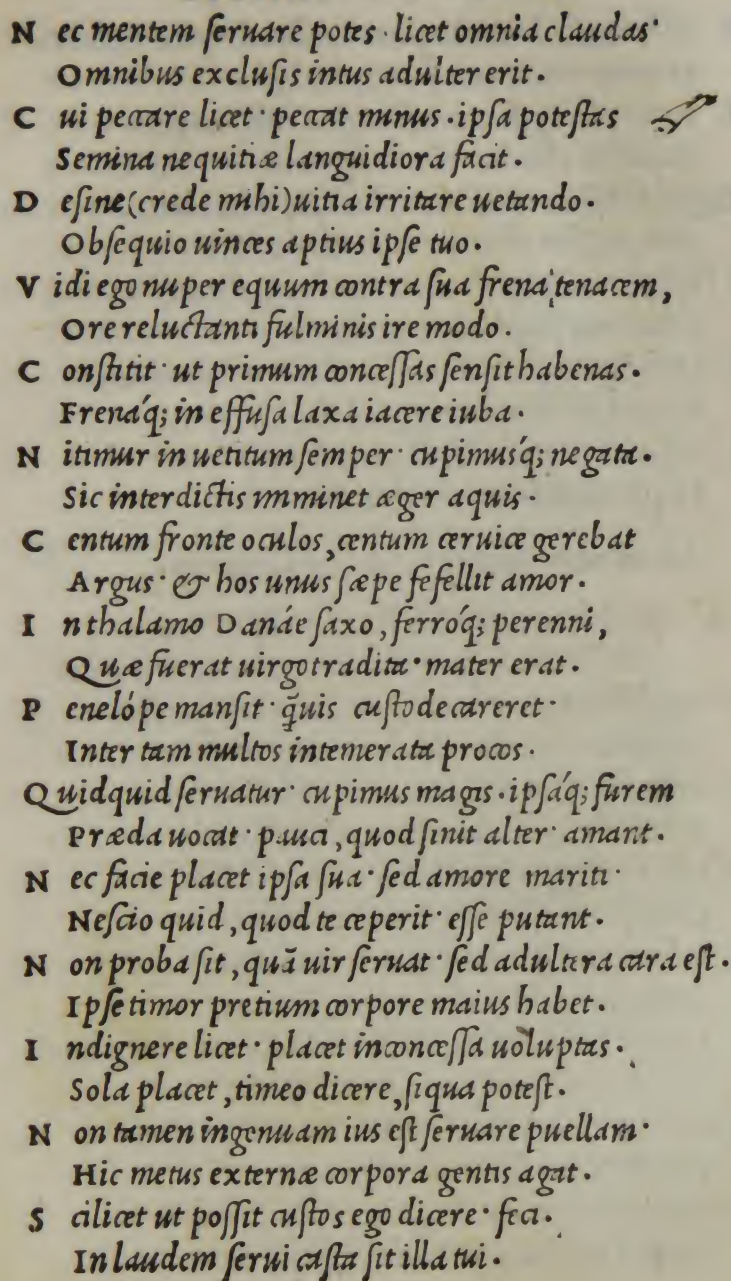 N ec mentem ſeruare potes · licet omnia claudas·
Omnibus excluſis intus adulter erit.
C ui peccare licet· peccat minus. ipſa poteſtas
Semina nequitiæ languidiora facit.
D eſine (crede mihi) uitia irritare uetando.
Obſequio uinces aptius ipſe tuo.
V idi ego nuper equum contra ſua frena tenacem,
Ore reluctanti fulminis ire modo.
C onſtitit· ut primum conceſſas ſenſit habenas.
Frenáq; in effuſa laxa iacere iuba.
N itimur in uetitum ſemper· cupimusq́; negata.
Sic interdictis imminet æger aquis.
C entum fronte oculos, centum ceruice gerebat
Argus· & hos unus ſæpe fefellit amor.
I n thalamo Danáe ſaxo, ferróq; perenni,
Quæ fuerat uirgo tradita· mater erat.
P enelópe manſit· q̃uis cuſtode careret·
Inter tam multos intemerata procos.
Quidquid ſeruatur· cupimus magis. ipſáq; furem
Præda uocat· pauci, quod ſinit alter· amant.
N ec facie placet ipſa ſua· ſed amore mariti·
Neſcio quid, quod te ceperit· eſſe putant.
N on proba ſit, quã uir ſeruat· ſed adultera cara eſt.
Ipſe timor pretium corpore maius habet.
I ndignere licet· placet inconceſſa uoluptas.
Sola placet, timeo dicere, ſiqua poteſt.
N on tamen ingenuam ius eſt ſeruare puellam·
Hic metus externæ corpora gentis agat.
S cilicet ut poſſit cuſtos ego dicere· feci.
In laudem ſerui caſta ſit illa tui.